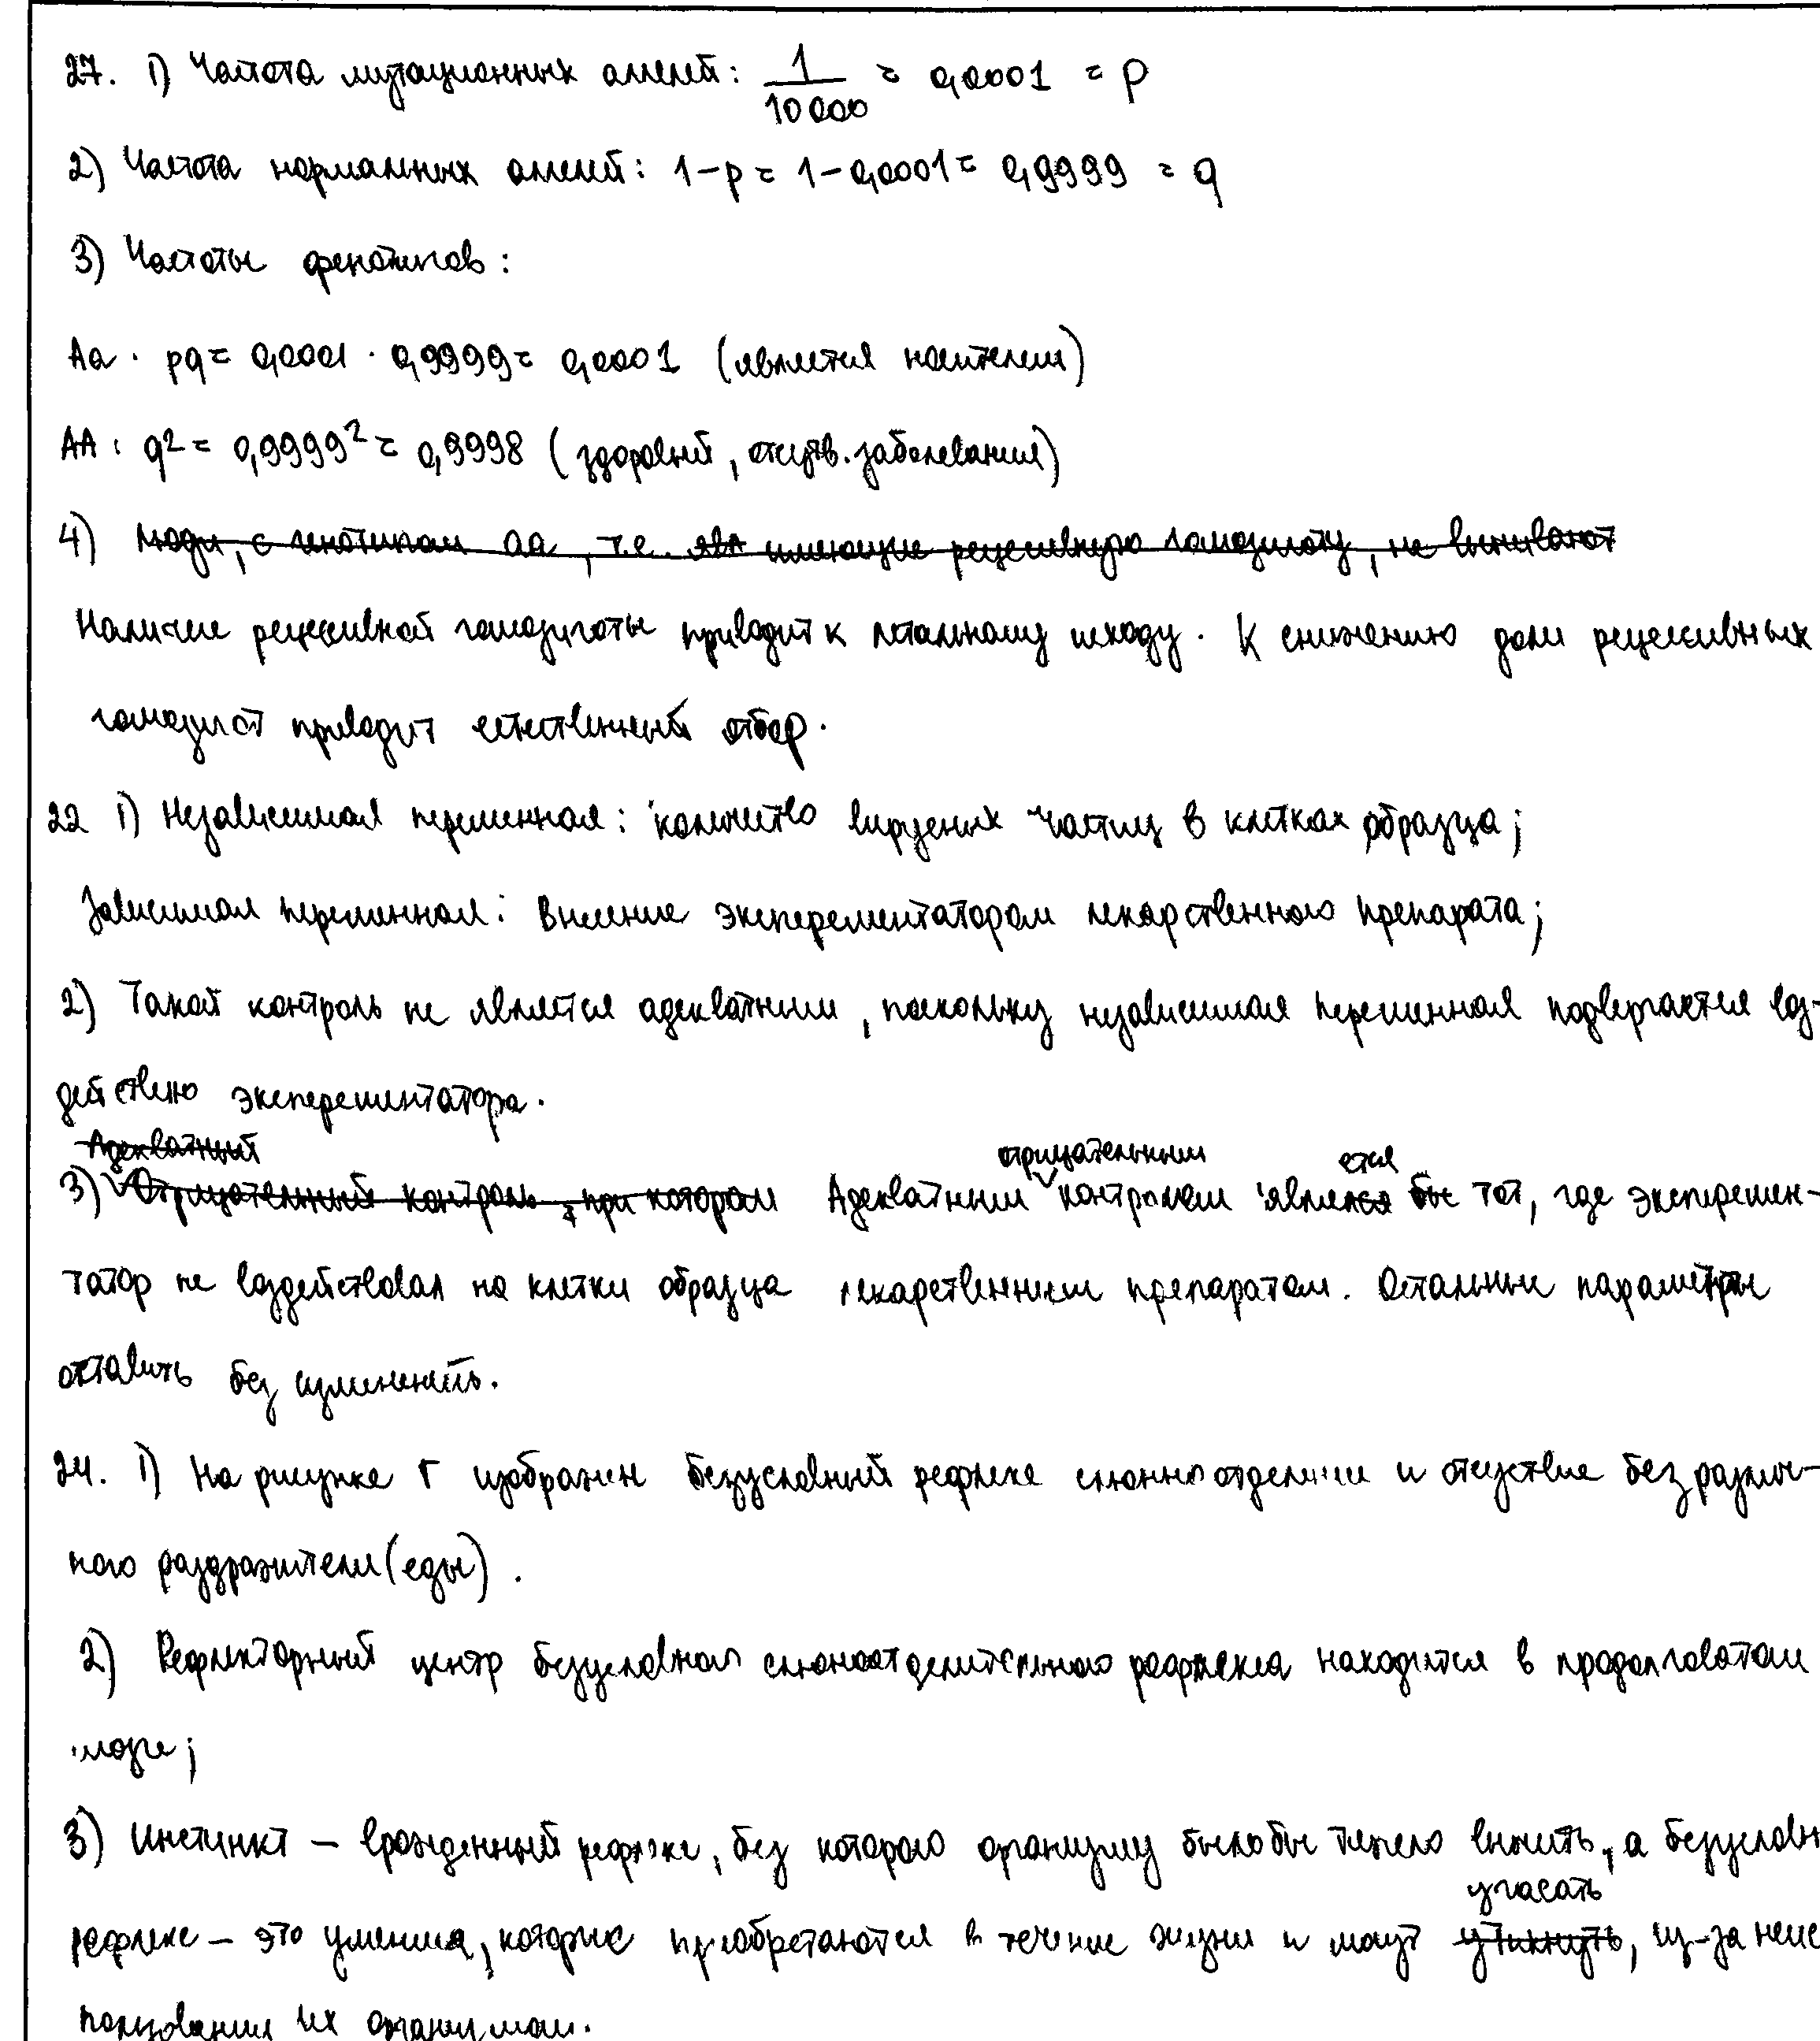 27. 1) Частота мутационных аллелей: 1/10000 = 0,0001 = p
2) Частота нормальных аллелей: 1-p = 1-0,0001 = 0,9999 = q
3) Частоты фенотипов:
Aa: pq = 0,0001 · 0,9999 = 0,0001 (является носителем)
AA: q² = 0,9999² = 0,9998 (здоровый, отсутв. заболевания)
4) Люди, с генотипом аа, т.е. явл имеющие рецессивную гомозиготу, не выживают
Наличие рецессивной гомозиготы приводит к летальному исходу. К снижению доли рецессивных
гомозигот приводит естественный отбор.
22 1) Независимая переменная: количество вирусных частиц в клетках образца;
Зависимая переменная: внесение эксперементатором лекарственного препарата;
2) Такой контроль не является адекватным, поскольку независимая переменная подвергается воз-
действию эксперементатора.
Адекватный отрицательным ется
3) Отрицательный контроль, при котором Адекватным контролем является бы тот, где эксперемен-
татор не воздействовал на клетки образца лекарственным препаратом. Остальные параметры
оставить без изменений.
24. 1) На рисунке Г изображен безусловный рефлекс слюноотделение и отсуствие безразлич-
ного раздражителя (еды).
2) Рефлекторный центр безусловного слюноотделительного рефлекса находится в продолговатом
мозге;
3) Инстинкт – врожденный рефлекс, без которого организму было бы тяжело выжить, а безусловн
угасать
рефлекс – это умения, которые приобретаются в течение жизни и могут утихнуть, из-за неис
пользования их организмом.